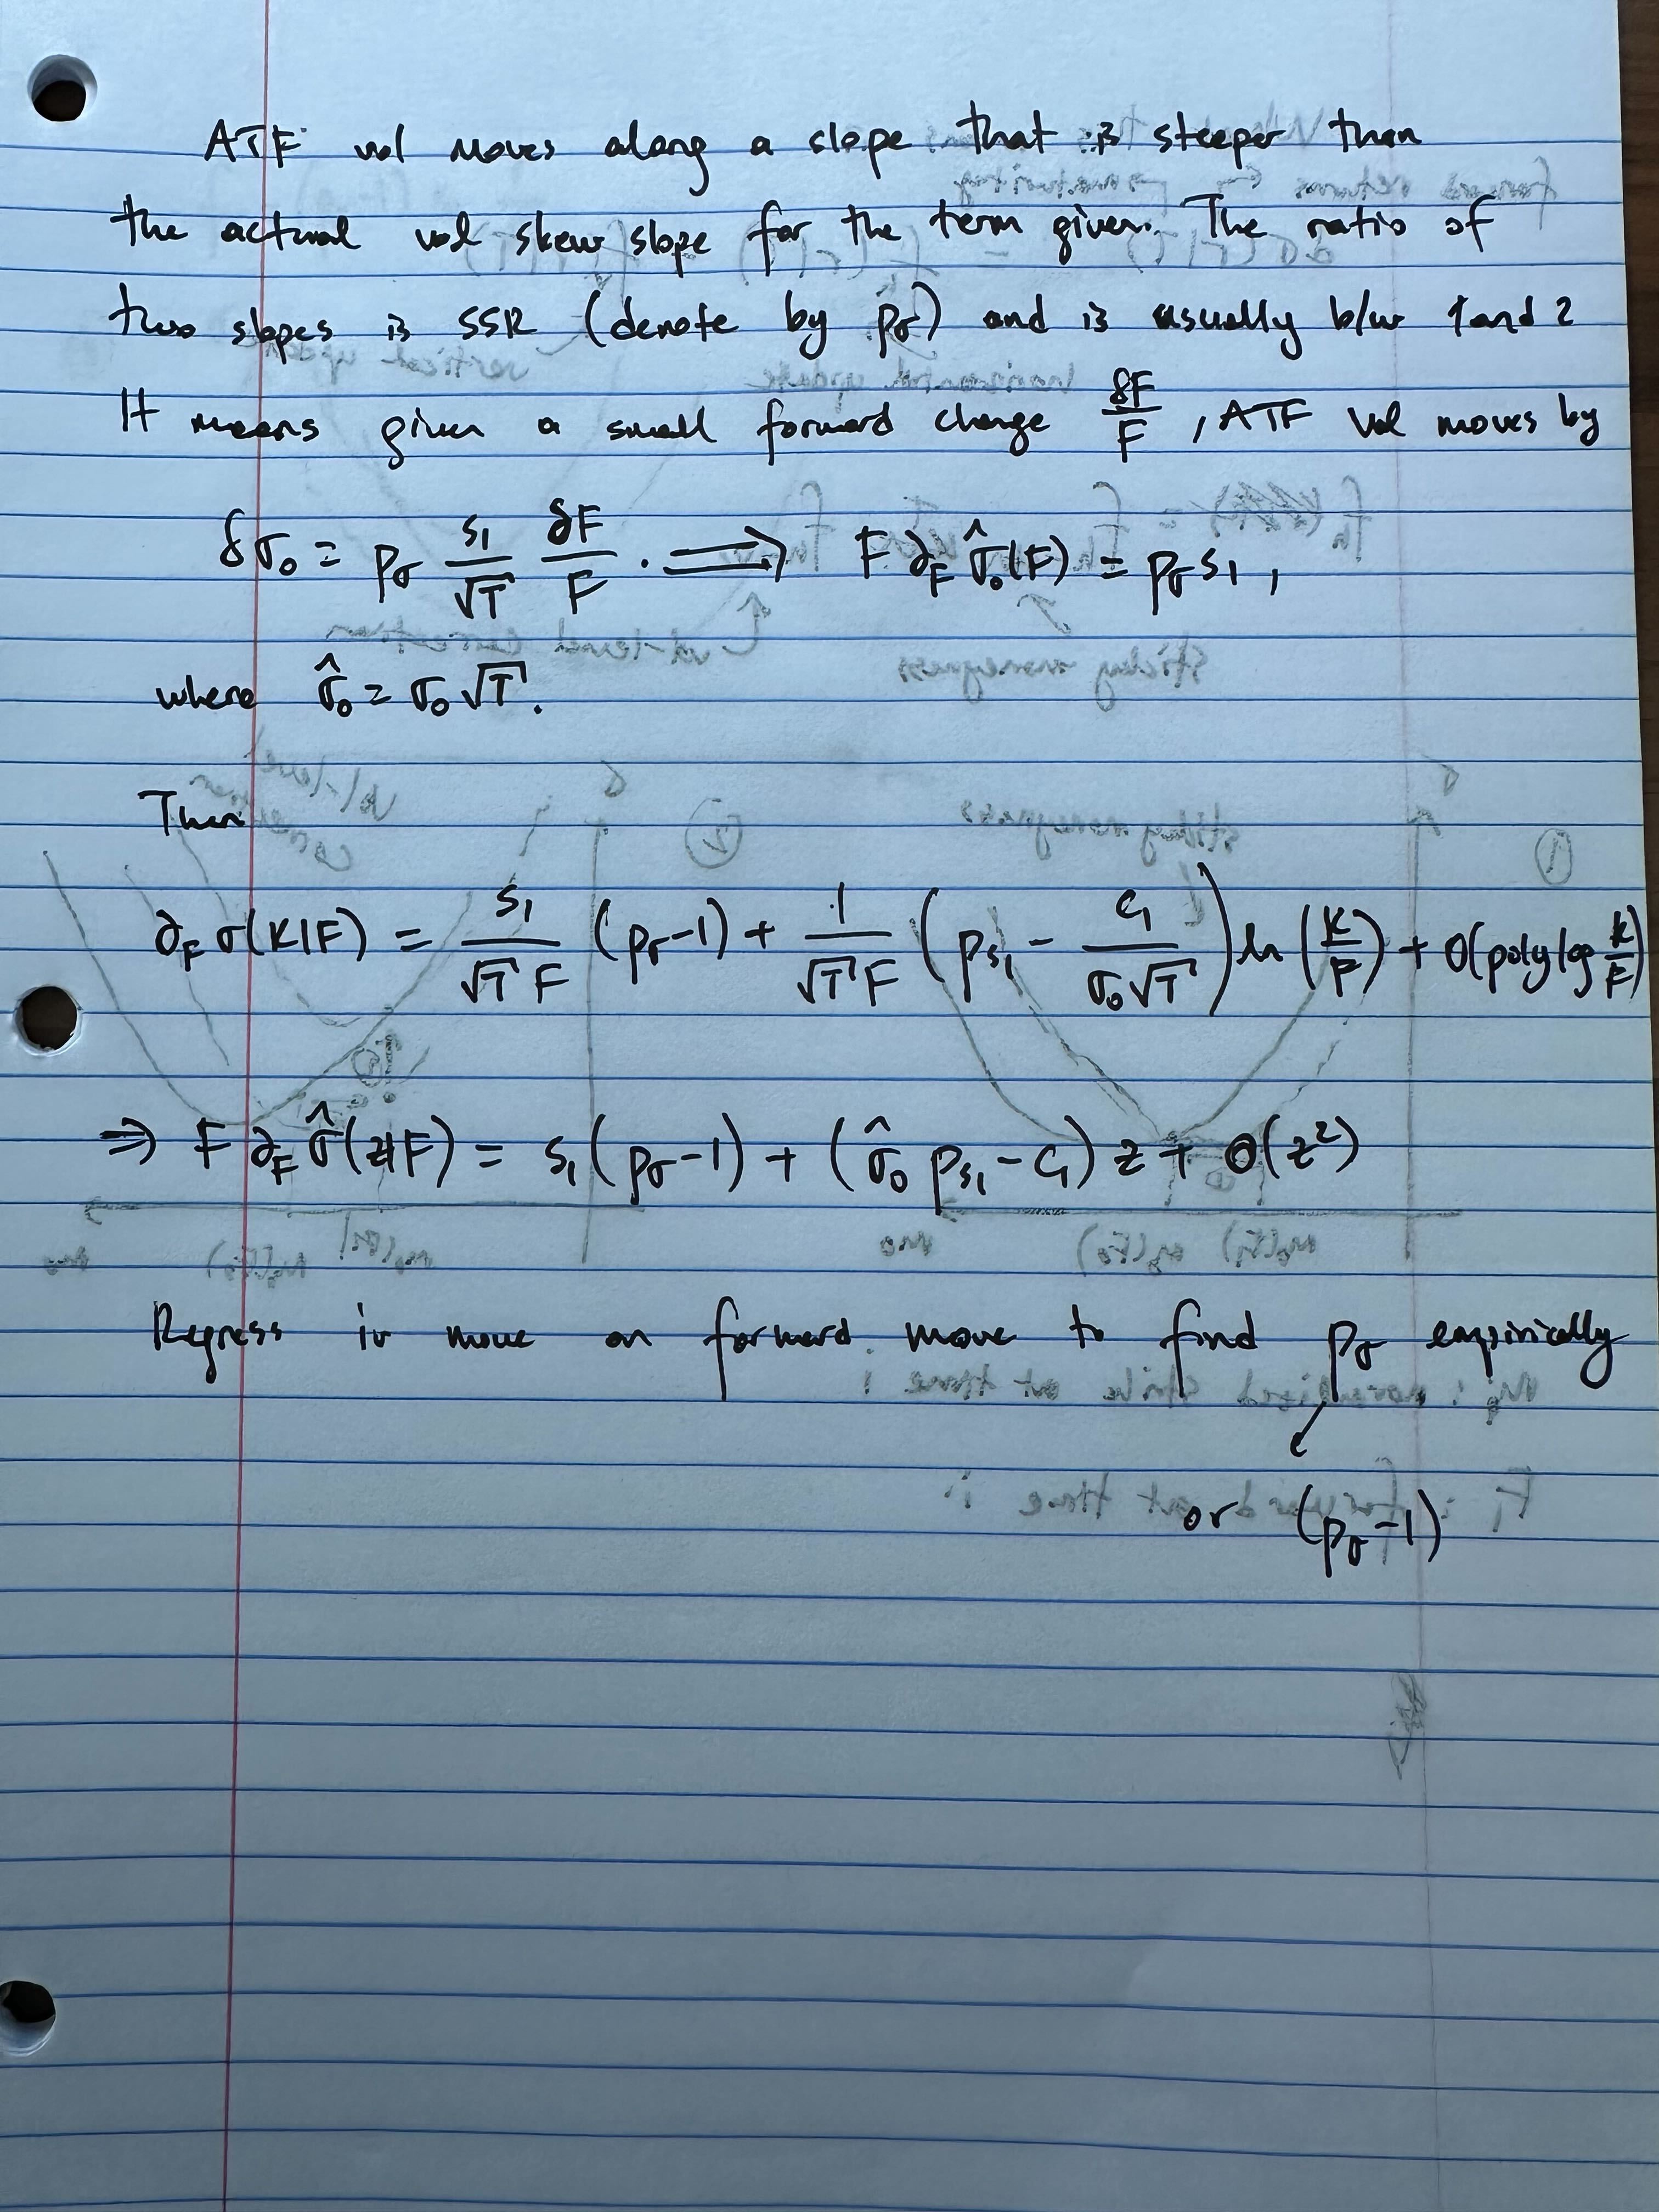 ATF vol moves along a slope that is steeper than
the actual vol skew slope for the term given. The ratio of
two slopes is SSR (denote by p_σ) and is usually b/w 1 and 2
It means given a small forward change δF/F, ATF vol moves by
δσ₀ = p_σ s₁/√T δF/F. ⟹ F ∂_F σ̂₀(F) = p_σ s₁,
where σ̂₀ = σ₀√T.
Then
∂_F σ(K|F) = s₁/(√T F) (p_σ-1) + 1/(√T F) (p_{s₁} - c₁/(σ₀√T)) ln(K/F) + O(poly log K/F)
⇒ F ∂_F σ̂(z|F) = s₁(p_σ-1) + (σ̂₀ p_{s₁} - c₁) z + O(z²)
Regress iv move on forward move to find p_σ empirically
or (p_σ-1)